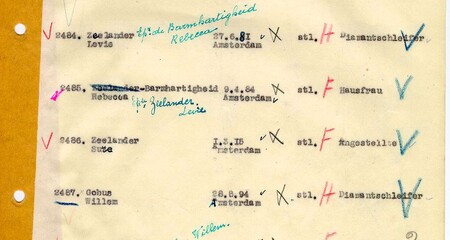 Ep: de Barmhartigheid
Rebecca
2484. Zeelander 27.6.81 stl. H Diamantschleifer
Lovic Amsterdam
2485. Zeelander-Barmhartigheid 9.4.84 X stl. F Hausfrau
Rebecca Ep: Zeelander Amsterdam
2486. Zeelander 1.5.15 X stl. F Angestellte
Suze Amsterdam
2487. Gobus 28.8.94 X stl. H Diamantschleifer
Willem Amsterdam
Willem.